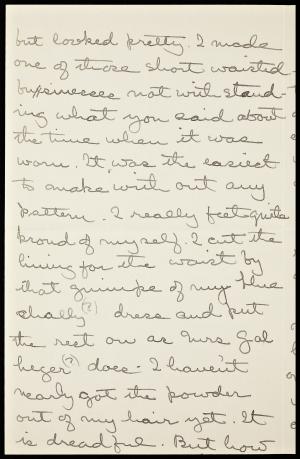 but looked pretty. I made
one of those short waisted
businesses not withstand-
ing what you said about
the time when it was
worn. It was the easiest
to make with out any
pattern. I really feel quite
proud of myself. I cut the
lining for the waist by
that guimpe of my blue
challys (?) dress and put
the rest on as Mrs Gal
heger (?) does - I haven't
nearly got the powder
out of my hair yet. It
is dreadful. But how